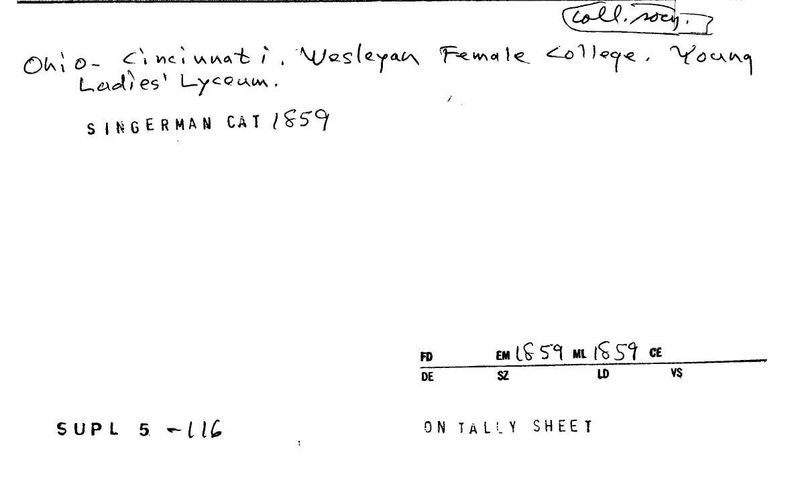 Coll. socy.
Ohio- Cincinnati. Wesleyan Female College. Young
Ladies' Lyceum.
SINGERMAN CAT 1859
FD EM 1859 ML 1859 CE
DE SZ LD VS
SUPL 5 -116 ON TALLY SHEET